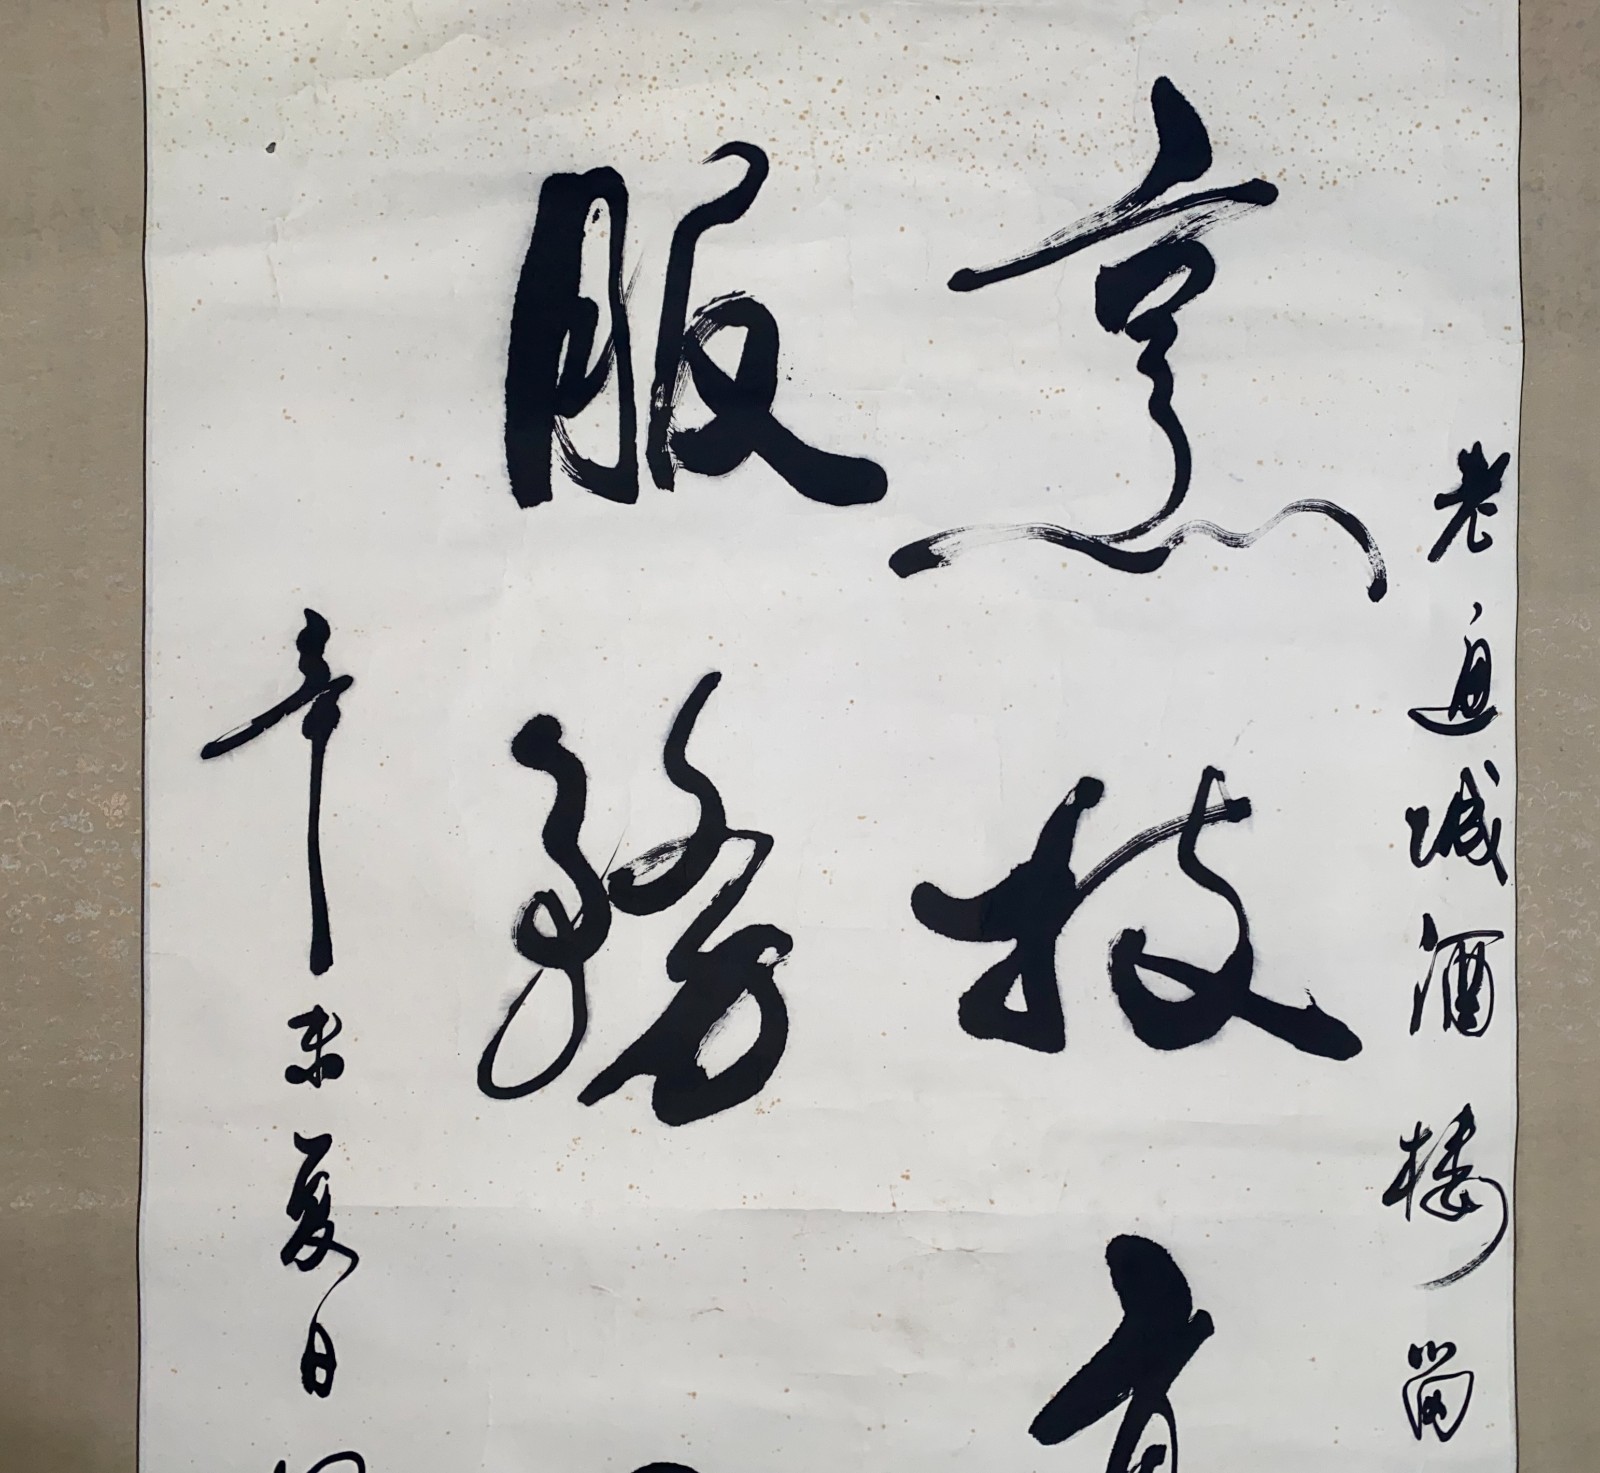 老通城酒楼
烹技
服務
辛未夏日